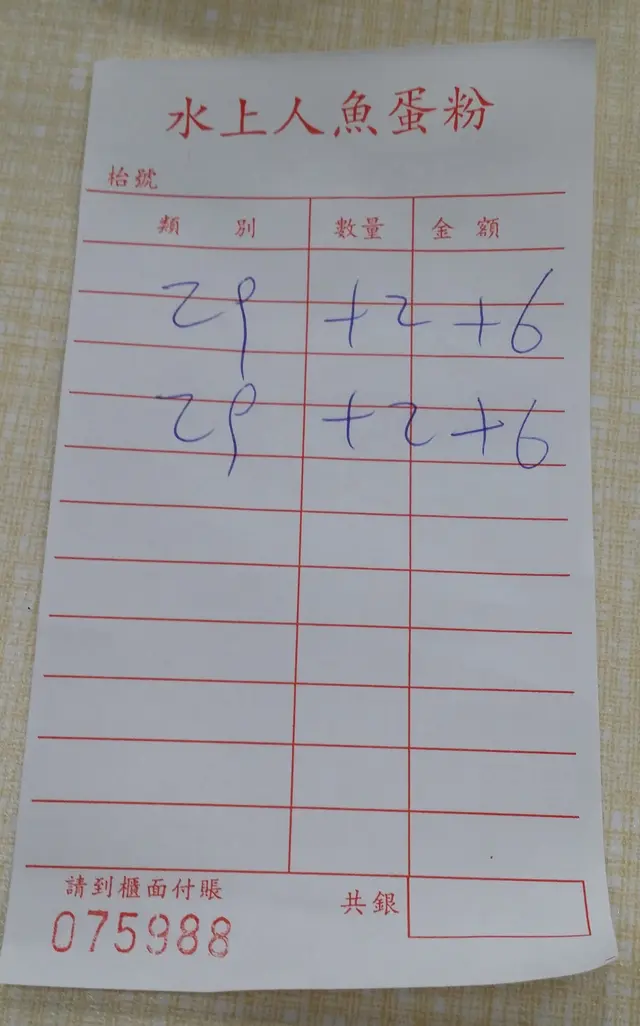 水上人魚蛋粉
枱號
類別 數量 金額
29 +2 +6
29 +2 +6
請到櫃面付賬 共銀
075988